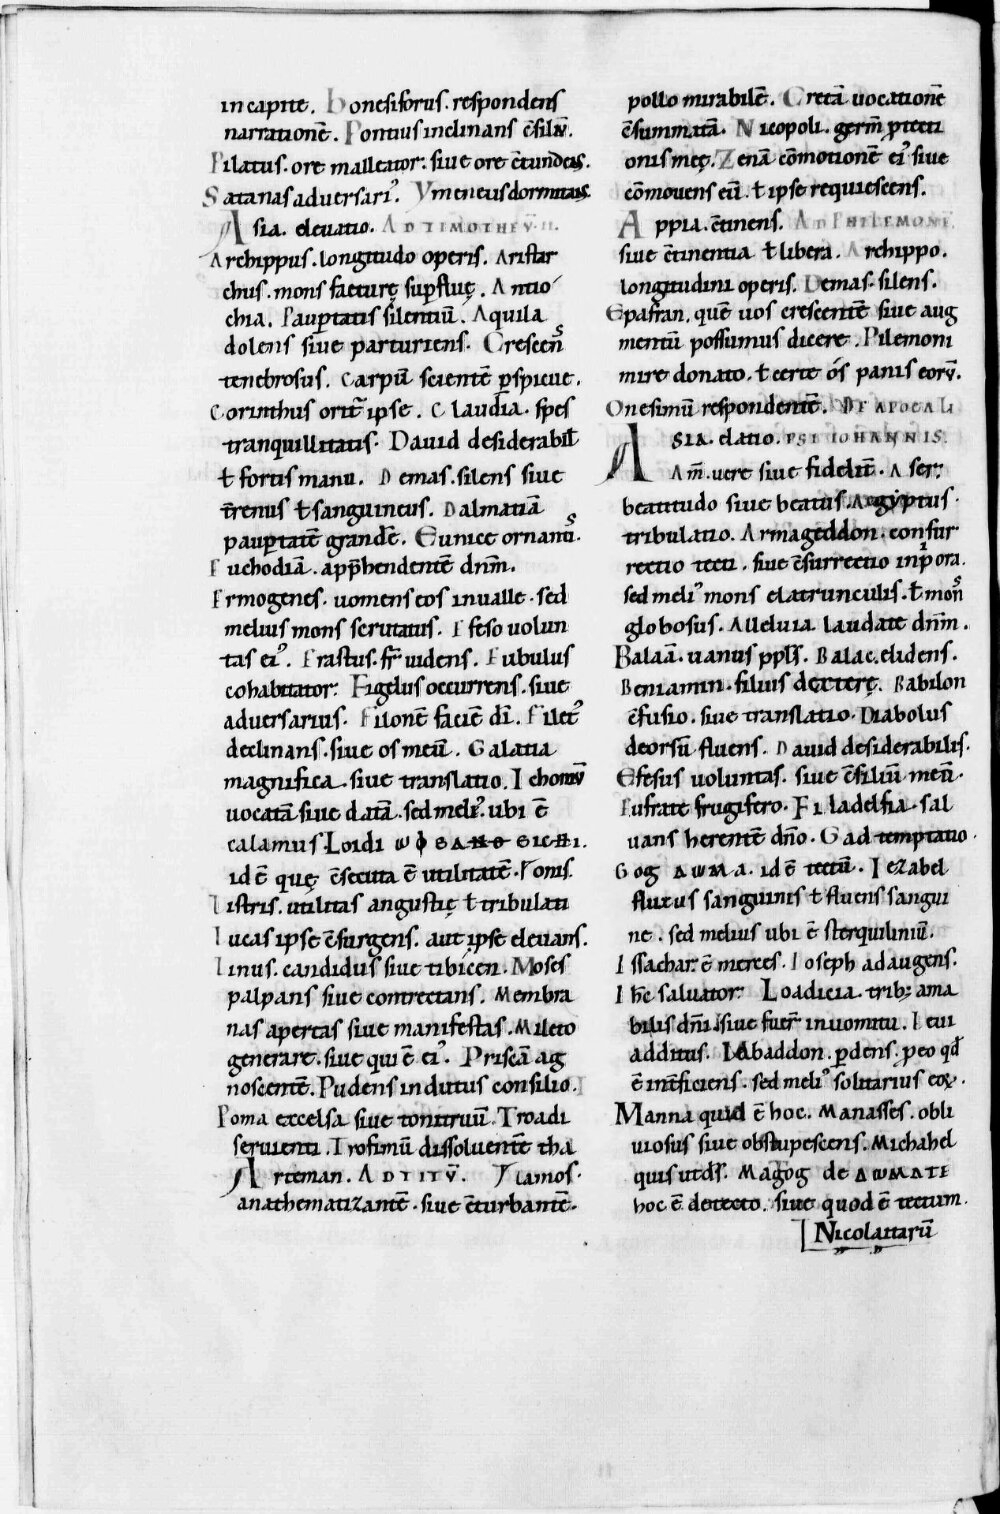 in capite. Honesiforus. respondens
narrationē. Pontius inclinans c̄siliū.
Pilatus. ore malleator: siue ore c̄tundens.
Satanas aduersari᾽. Ymeneus dormitans.
Asia. eleuatio. AD TIMOTHEŪ. II.
Archippus. longitudo operis. Aristar
chus. mons facturę suꝑfluę. Antio
chia. Pauꝑtatis silentiū. Aquila
dolens siue parturiens. Crescens
tenebrosus. Carpū scientē ꝑspicue.
Corinthus orit᷑ ipse. Claudia. spes
tranquillitatis. Dauid desiderabil̄
ł fortis manu. Demas. silens siue
t̄renus ł sanguineus. Dalmatiā
pauꝑtatē grandē. Eunice ornans.
Euchodiā. app̄hendentē dnm̄.
Ermogenes. uomens eos in ualle. sed
melius mons scrutatus. Efeso uolun
tas ei᾽. Erastus. fr̄ uidens. Eubulus
cohabitator: Figelus occurrens. siue
aduersarius. Filonē faciē dī. Filet᾽
declinans. siue os meū. Galatia
magnifica. siue translatio. Ichoniū
uocatā siue datā. sed meli᾽. ubi ē
calamus. Loidi
id ē quę c̄secuta ē utilitatē. Fonis.
Listris. utilitas angustię ł tribulati
Lucas ipse c̄surgens. aut ipse eleuans.
Linus. candidus siue tibicen. Moses
palpans siue contrectans. Membra
nas apertas siue manifestas. Mileto
generare. siue qui ē ei᾽. Priscā ag
noscentē. Pudens indutus consilio.
Roma excelsa siue tonitruū. Troadi
seruienti. Trofimū dissoluentē tha
Arteman. AD TITŪ. lamos.
anathematizantē. siue c̄turbantē.
pollo mirabilē. Cretā uocationē
c̄summatā. Nicopoli. germ̄ ꝓtecti
onis meę. Zenā cōmotionē ei᾽ siue
cōmouens eū. ł ipse requiescens.
Appia. c̄tinens. AD PHILEMONĒ.
siue c̄tinentia ł libera. Archippo.
longitudini operis. Demas. silens.
Epafran. quē uos crescentē siue aug
mentū possumus dicere. Pilemoni
mire donato. ł certe ós panis eorū.
Onesimū respondentē. DE APOCALI
Asia. elatio. PSI IOHANNIS.
Am̄. uere siue fideliū. Aser:
beatitudo siue beatus. Aegyptus.
tribulatio. Armageddon. consur
rectio tecti. siue c̄surrectio in pͥora.
sed meli᾽ mons e latrunculis. ł mons
globosus. Alleluia laudate dnm̄.
Balaā. uanus ppl̄s. Balac. elidens.
Beniamin. filius dexterę. Babilon
c̄fusio. siue translatio. Diabolus
deorsū fluens. Dauid desiderabilis.
Efesus uoluntas. siue c̄siliū meū.
Eufrate frugifero. Filadelfia. sal
uans herentē dn̄o. Gad temptatio.
Gog ΔΩΜΑ. id ē tectū. Iezabel
fluxus sanguinis ł fluens sangui
ne. sed melius ubi ē sterquiliniū.
Issachar. ē merces. Ioseph adaugens.
Ihc̄ saluator. Loadicia. trib; ama
bilis dn̄i. siue fuer̄ in uomitu. Leui
additus. Labaddon. ꝑdens. ꝑeo qđ
ē inīficiens. sed meli᾽ solitarius eoꝝ.
Manna quid ē hoc. Manasses. obli
uiosus siue obstupescens. Michahel
quis ut ds̄. Magog de ΔΩΜΑΤΕ
hoc ē detecto. siue quod ē tectum.
Nicolaitarū